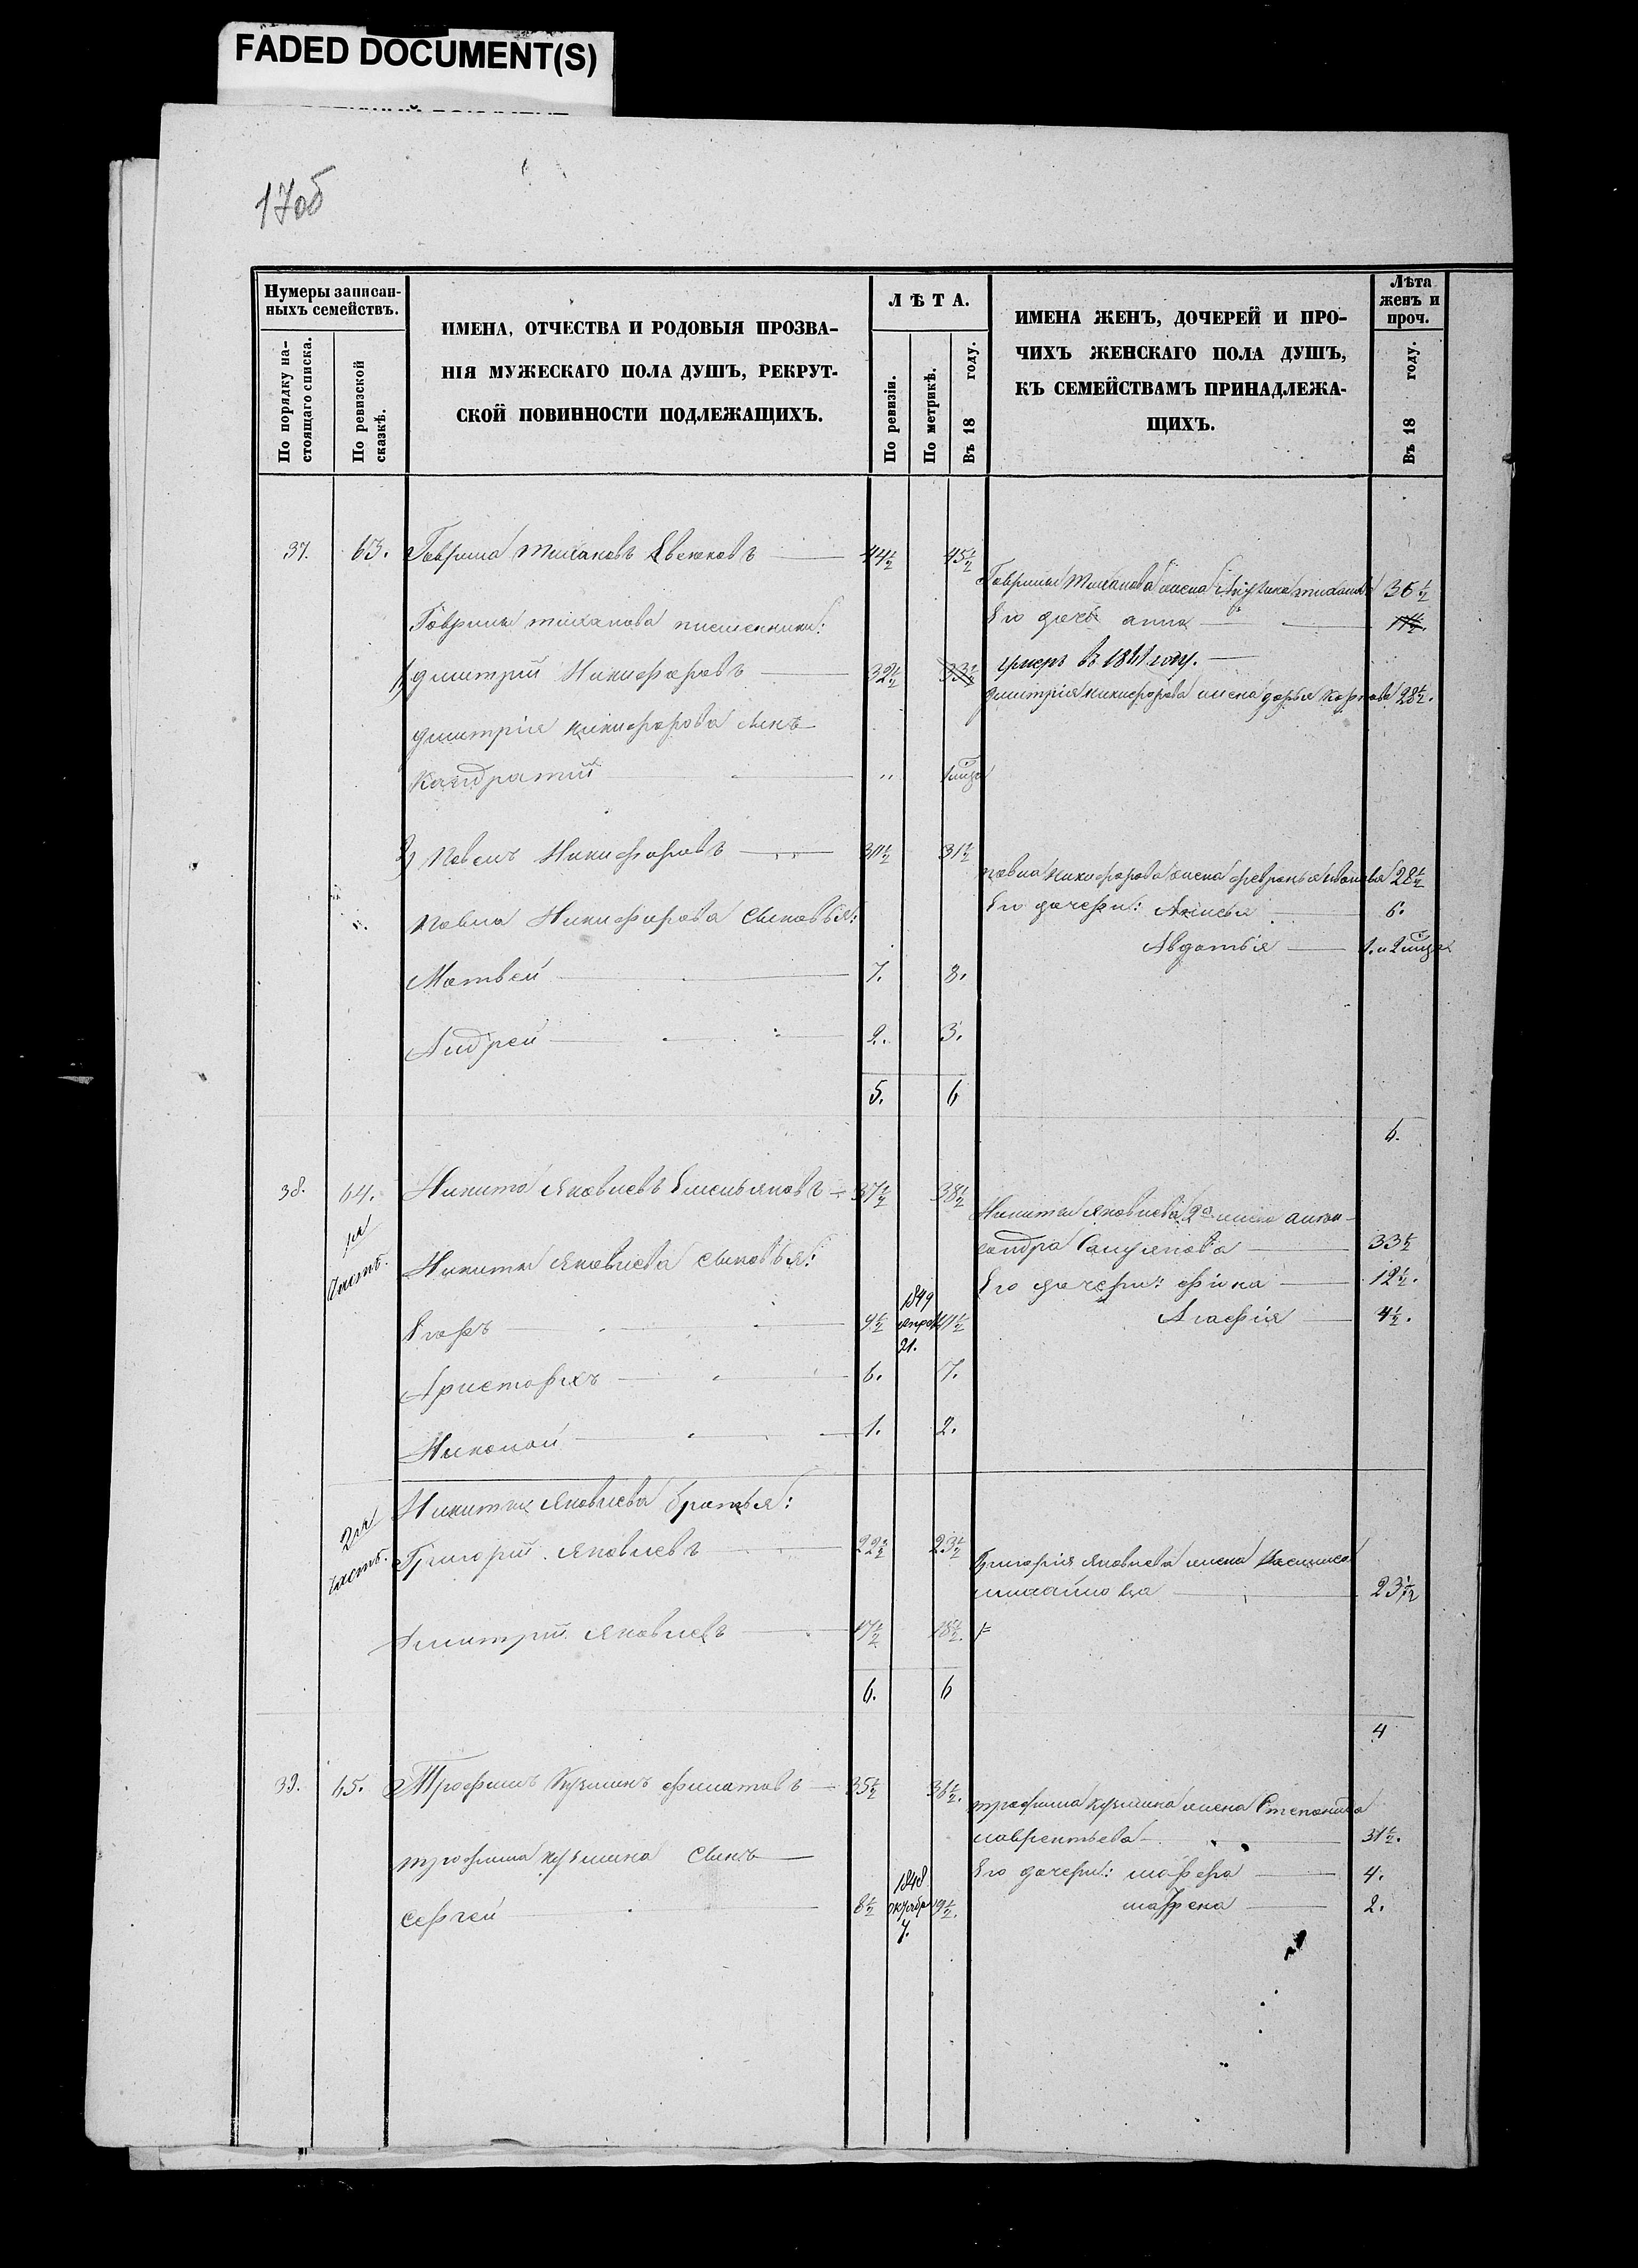 FADED DOCUMENT(S)
17об
Нумеры записан-
ныхъ семействъ.
По порядку на-
стоящаго списка.
По ревизской
сказкѣ.
ИМЕНА, ОТЧЕСТВА И РОДОВЫЯ ПРОЗВА-
НІЯ МУЖЕСКАГО ПОЛА ДУШЪ, РЕКРУТ-
СКОЙ ПОВИННОСТИ ПОДЛЕЖАЩИХЪ.
ЛѢТА.
По ревизіи.
По метрикѣ.
Въ 18 году.
ИМЕНА ЖЕНЪ, ДОЧЕРЕЙ И ПРО-
ЧИХЪ ЖЕНСКАГО ПОЛА ДУШЪ,
КЪ СЕМЕЙСТВАМЪ ПРИНАДЛЕЖА-
ЩИХЪ.
Лѣта
женъ и
проч.
Въ 18 году.
37. 63. Гаврила Тихановъ 44½ 45½
Гаврилы Тиханова жена 36½
Гаврилы тиханова племенники:
Его дочь анна
1) дмитрій Никифоровъ 32½ 33½
умеръ въ 1861 году.
дмитрія никифорова жена дарья 28½.
дмитрія никифорова сынъ
Кандратий „
2) Павелъ Никифоровъ 30½ 31½
павла никифорова жена 28½
Павла Никифорова сыновья:
Его дочери: Анисья 6.
Авдотья 1. и 2
Матвей 7. 8.
Андрей 2. 3.
5. 6
6.
38. 64. Никита Яковлевъ Емельяновъ 37½ 38½
1я
часть.
Никиты Яковлева 2я жена алек-
сандра 33½
Никиты Яковлева сыновья:
Его дочери: фіона 12½.
Агафія 4½.
Егоръ 9½ 1849 апрел 21. 11½
Аристархъ 6. 7.
Николай 1. 2.
2я
часть.
Никиты Яковлева братья:
Григорій Яковлевъ 22½ 23½
Григорія Яковлева жена
михайлова 23½
Дмитрій Яковлевъ 17½ 18½.
6. 6
4
39. 65. Трофимъ Кузминъ филатовъ 35½ 36½.
трофима кузмина жена Степанида
лаврентьева 31½.
трофима кузмина сынъ
Его дочери: 4.
матрена 2.
Сергей 8½ 1848 октября 7. 9½.